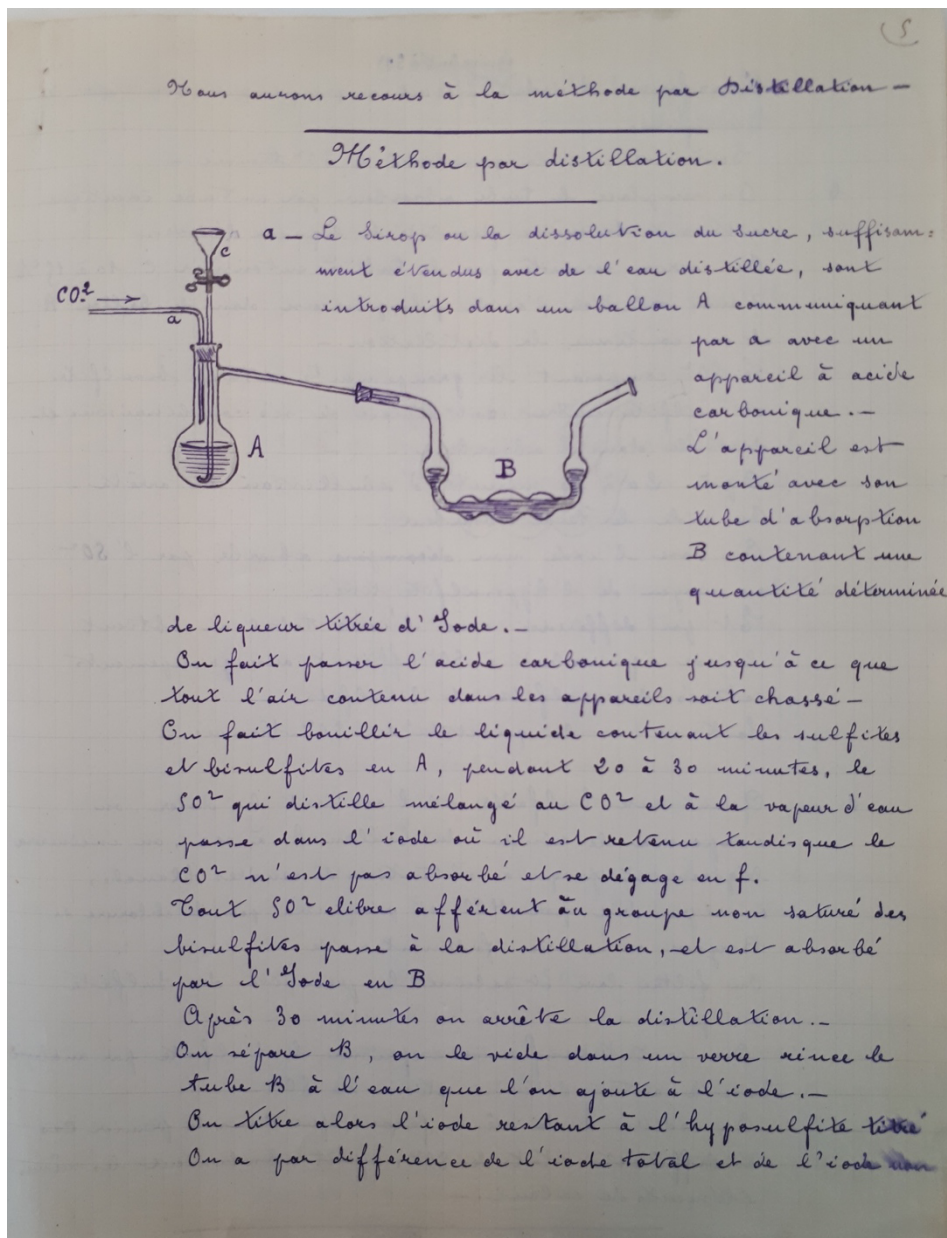 5
Nous aurons recours à la méthode par Distillation —
Méthode par distillation.
a — Le Sirop ou la dissolution du sucre, suffisam=
ment étendus avec de l'eau distillée, sont
introduits dans un ballon A communiquant
par a avec un
appareil à acide
carbonique. —
L'appareil est
monté avec son
tube d'absorption
B contenant une
quantité déterminée
c
CO² →
a
A
B
de liqueur titrée d'Iode. —
On fait passer l'acide carbonique jusqu'à ce que
tout l'air contenu dans les appareils soit chassé —
On fait bouillir le liquide contenant les sulfites
et bisulfites en A, pendant 20 à 30 minutes, le
SO² qui distille mélangé au CO² et à la vapeur d'eau
passe dans l'iode où il est retenu tandisque le
CO² n'est pas absorbé et se dégage en f.
Tout SO² elibre afférent au groupe non saturé des
bisulfites passe à la distillation, et est absorbé
par l'Iode en B
Après 30 minutes on arrête la distillation. —
On sépare B, on le vide dans un verre rince le
tube B à l'eau que l'on ajoute à l'iode. —
On titre alors l'iode restant à l'hyposulfite titré
On a par différence de l'iode total et de l'iode non